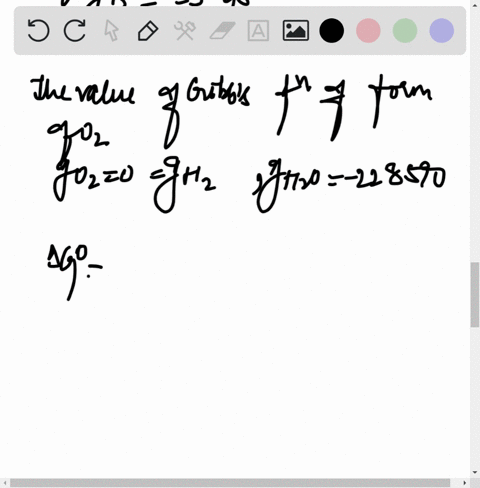 The value of Gibbs fⁿ of form
of O₂
gO₂ = 0 = gH₂ , gH₂O = -228590
ΔG° =